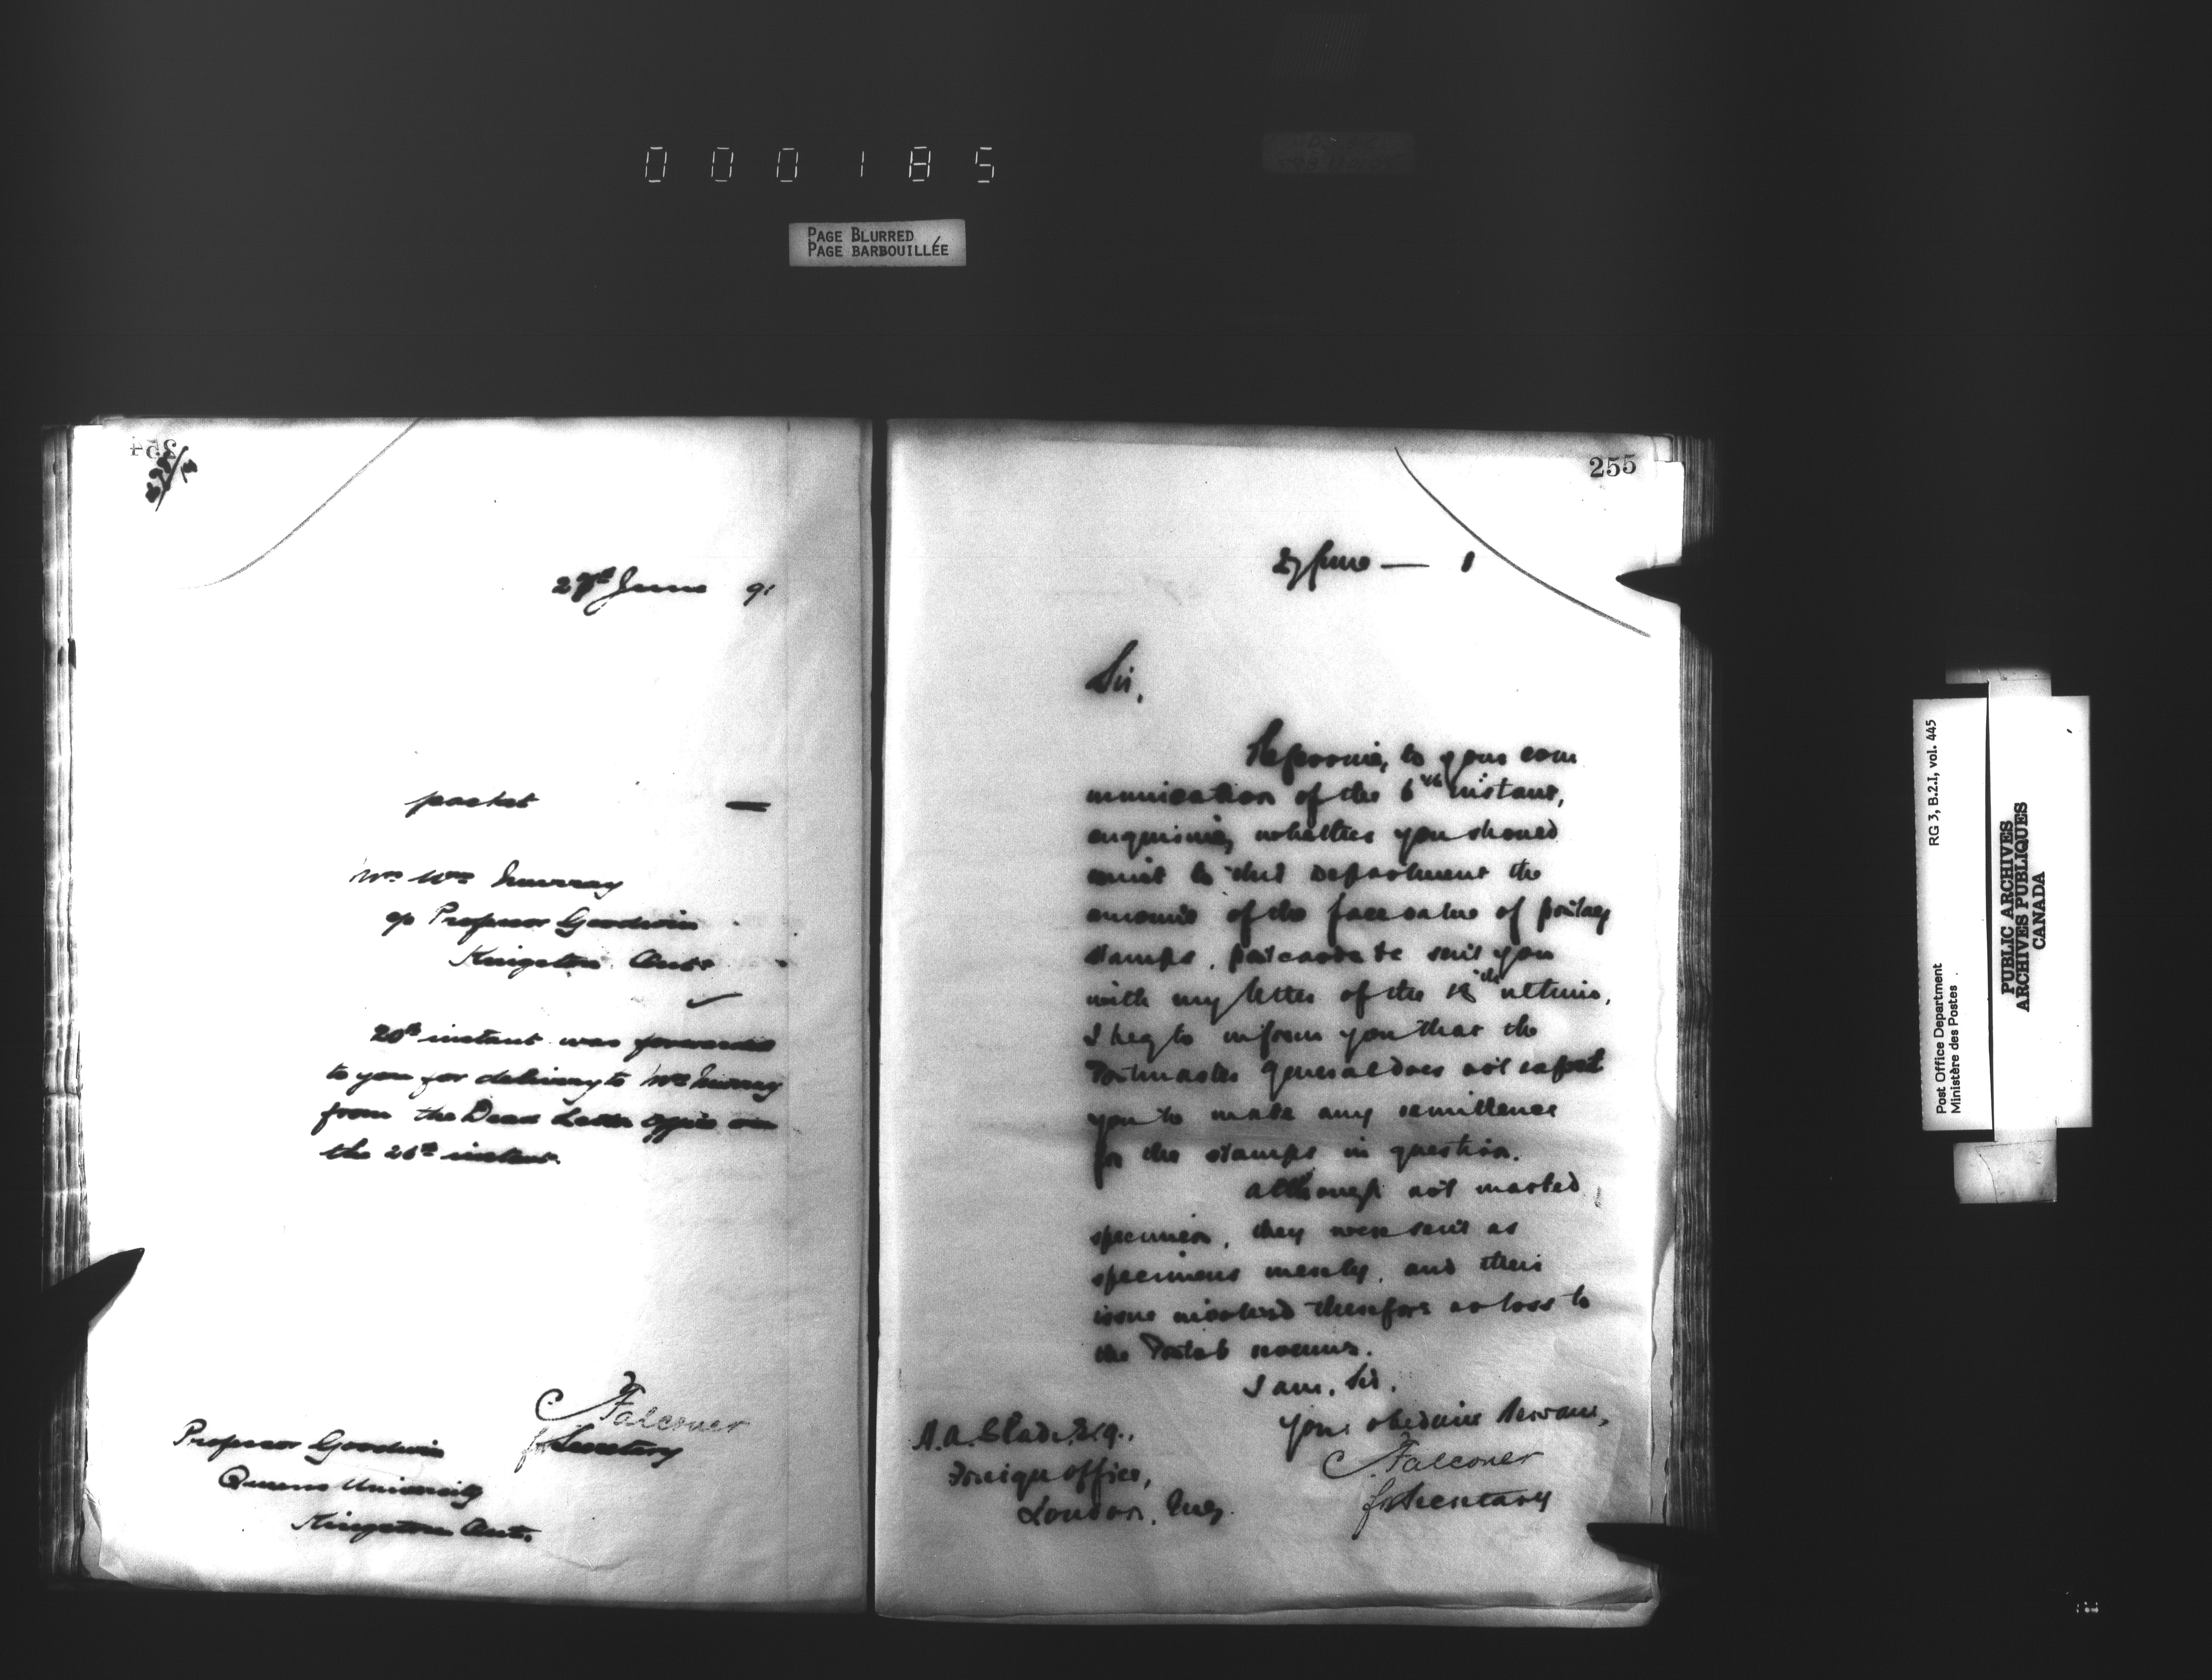 000185
PAGE BLURRED
PAGE BARBOUILLÉE
254
27th June 91
packet —
Mr Wm Murray
c/o Professor Goodwin
Kingston Ont.
20th instant was forwarded
to you for delivery to Mr Murray
from the Dead Letter Office on
the 26th instant.
C Falconer
for Secretary
Professor Goodwin
Queens University
Kingston Ont.
255
27 June — 1
Sir,
Referring to your com
munication of the 6th instant,
enquiring whether you should
remit to this Department the
amount of the face value of postage
stamps, postcards &c sent you
with my letter of the 18th ultimo,
I beg to inform you that the
Postmaster General does not expect
you to make any remittance
for the stamps in question.
Although not marked
specimen, they were sent as
specimens merely, and their
issue involved therefore no loss to
the Postal revenue.
I am, Sir,
Your obedient servant,
C Falconer
for Secretary
A. A. Slade, Esq.,
Foreign Office,
London, Eng.
Post Office Department
Ministère des Postes
RG 3, B.2.I, vol. 445
PUBLIC ARCHIVES
ARCHIVES PUBLIQUES
CANADA